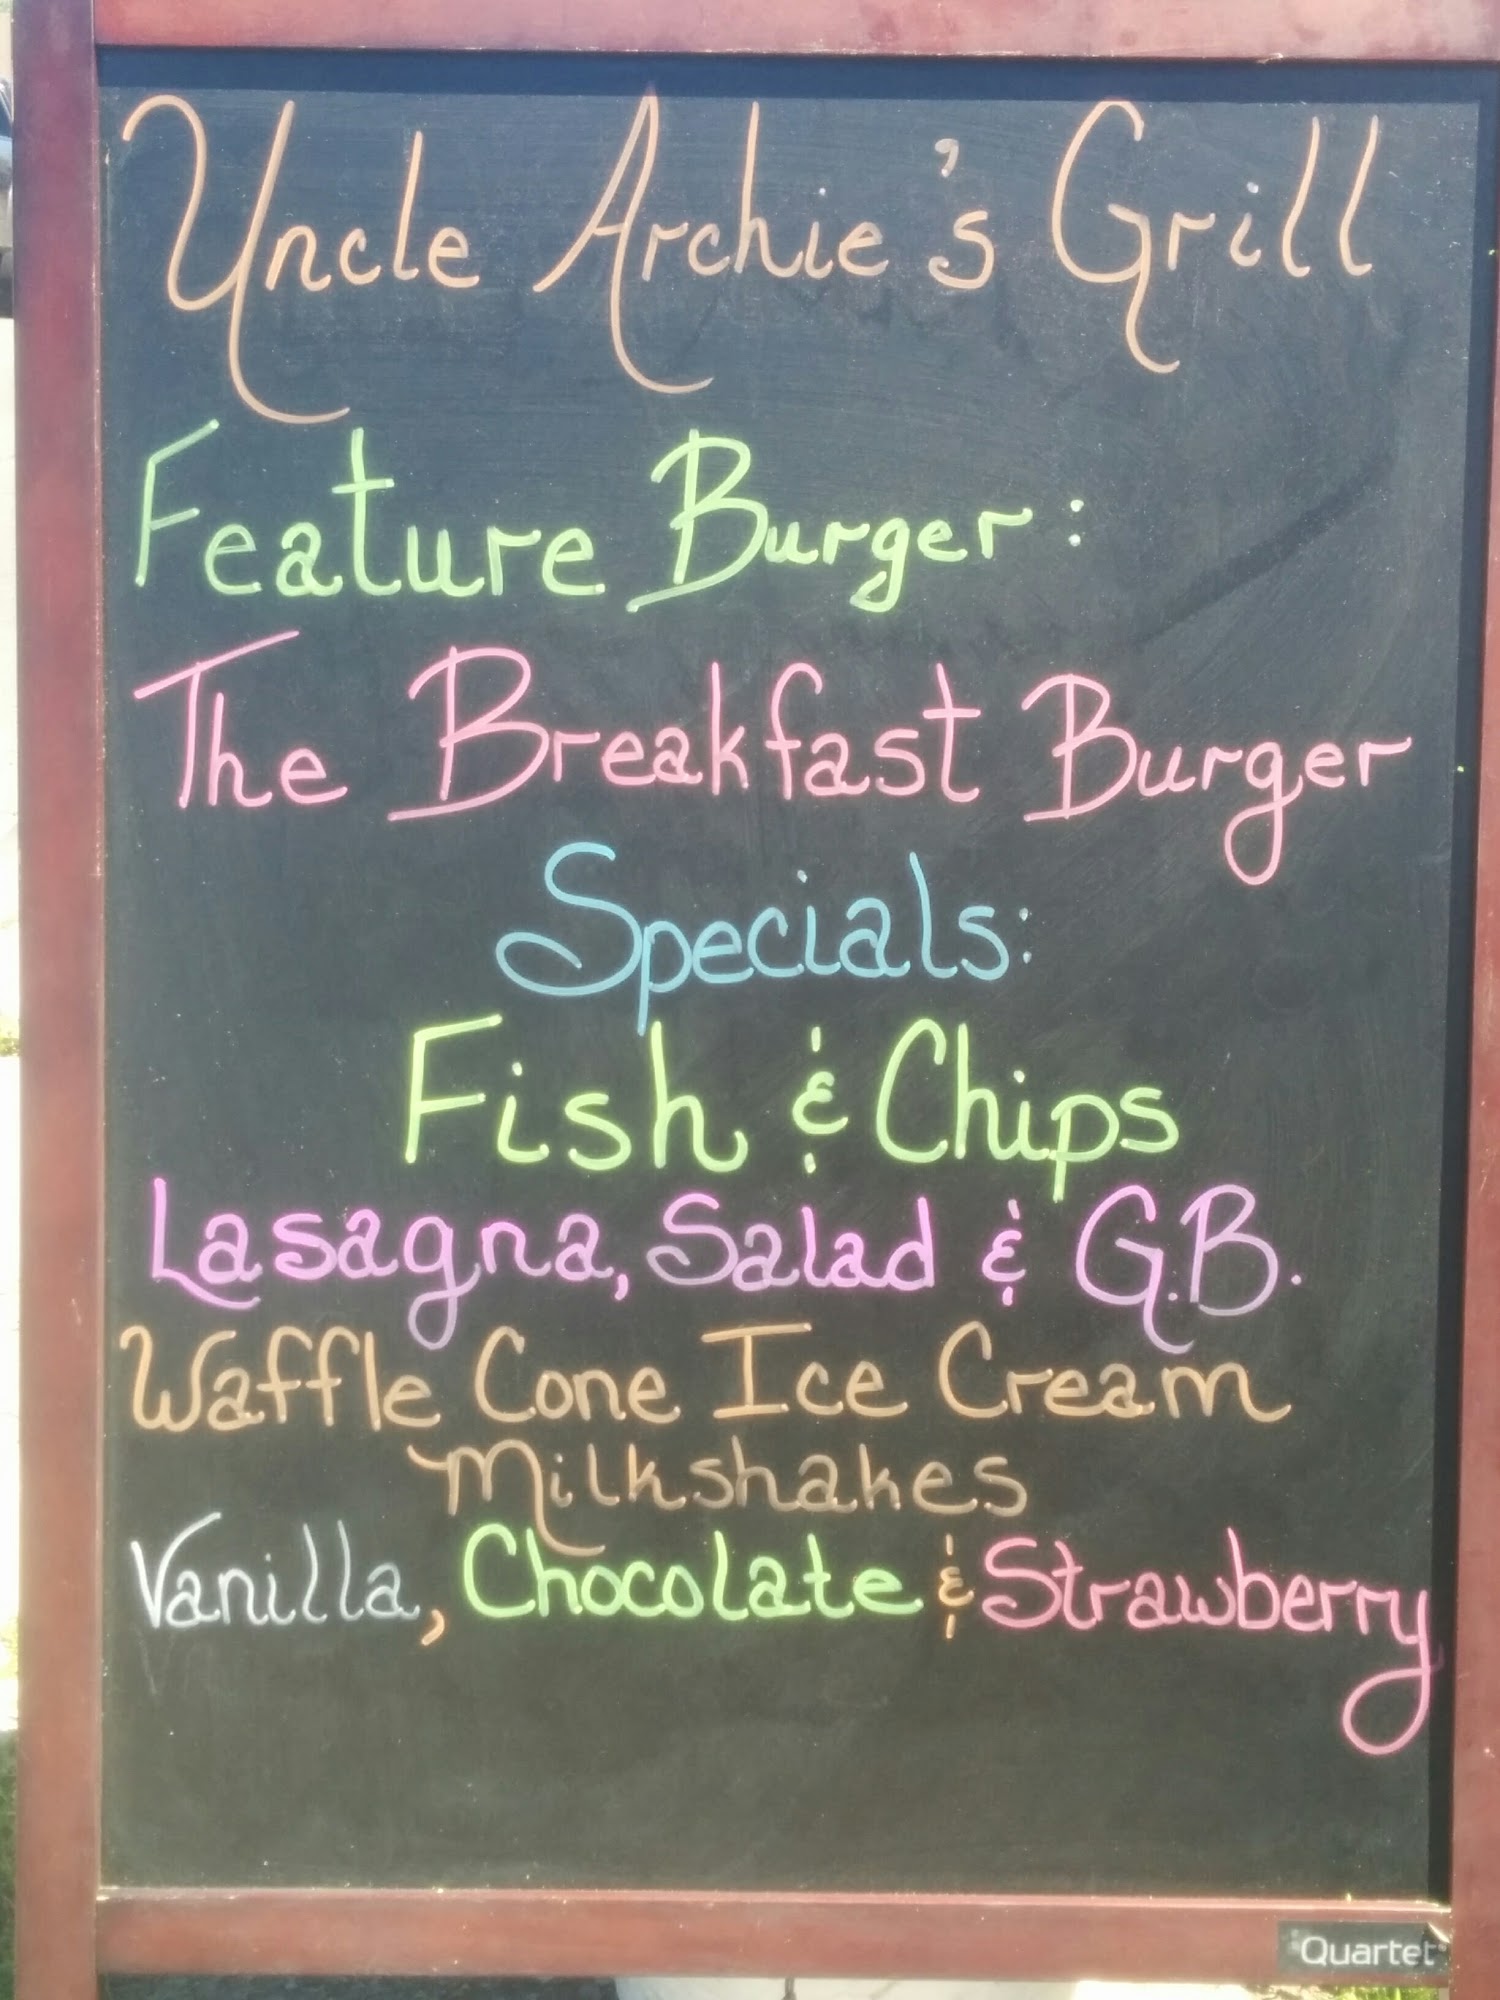 Uncle Archie's Grill
Feature Burger:
The Breakfast Burger
Specials:
Fish & Chips
Lasagna, Salad & G.B.
Waffle Cone Ice Cream
Milkshakes
Vanilla, Chocolate & Strawberry
Quartet